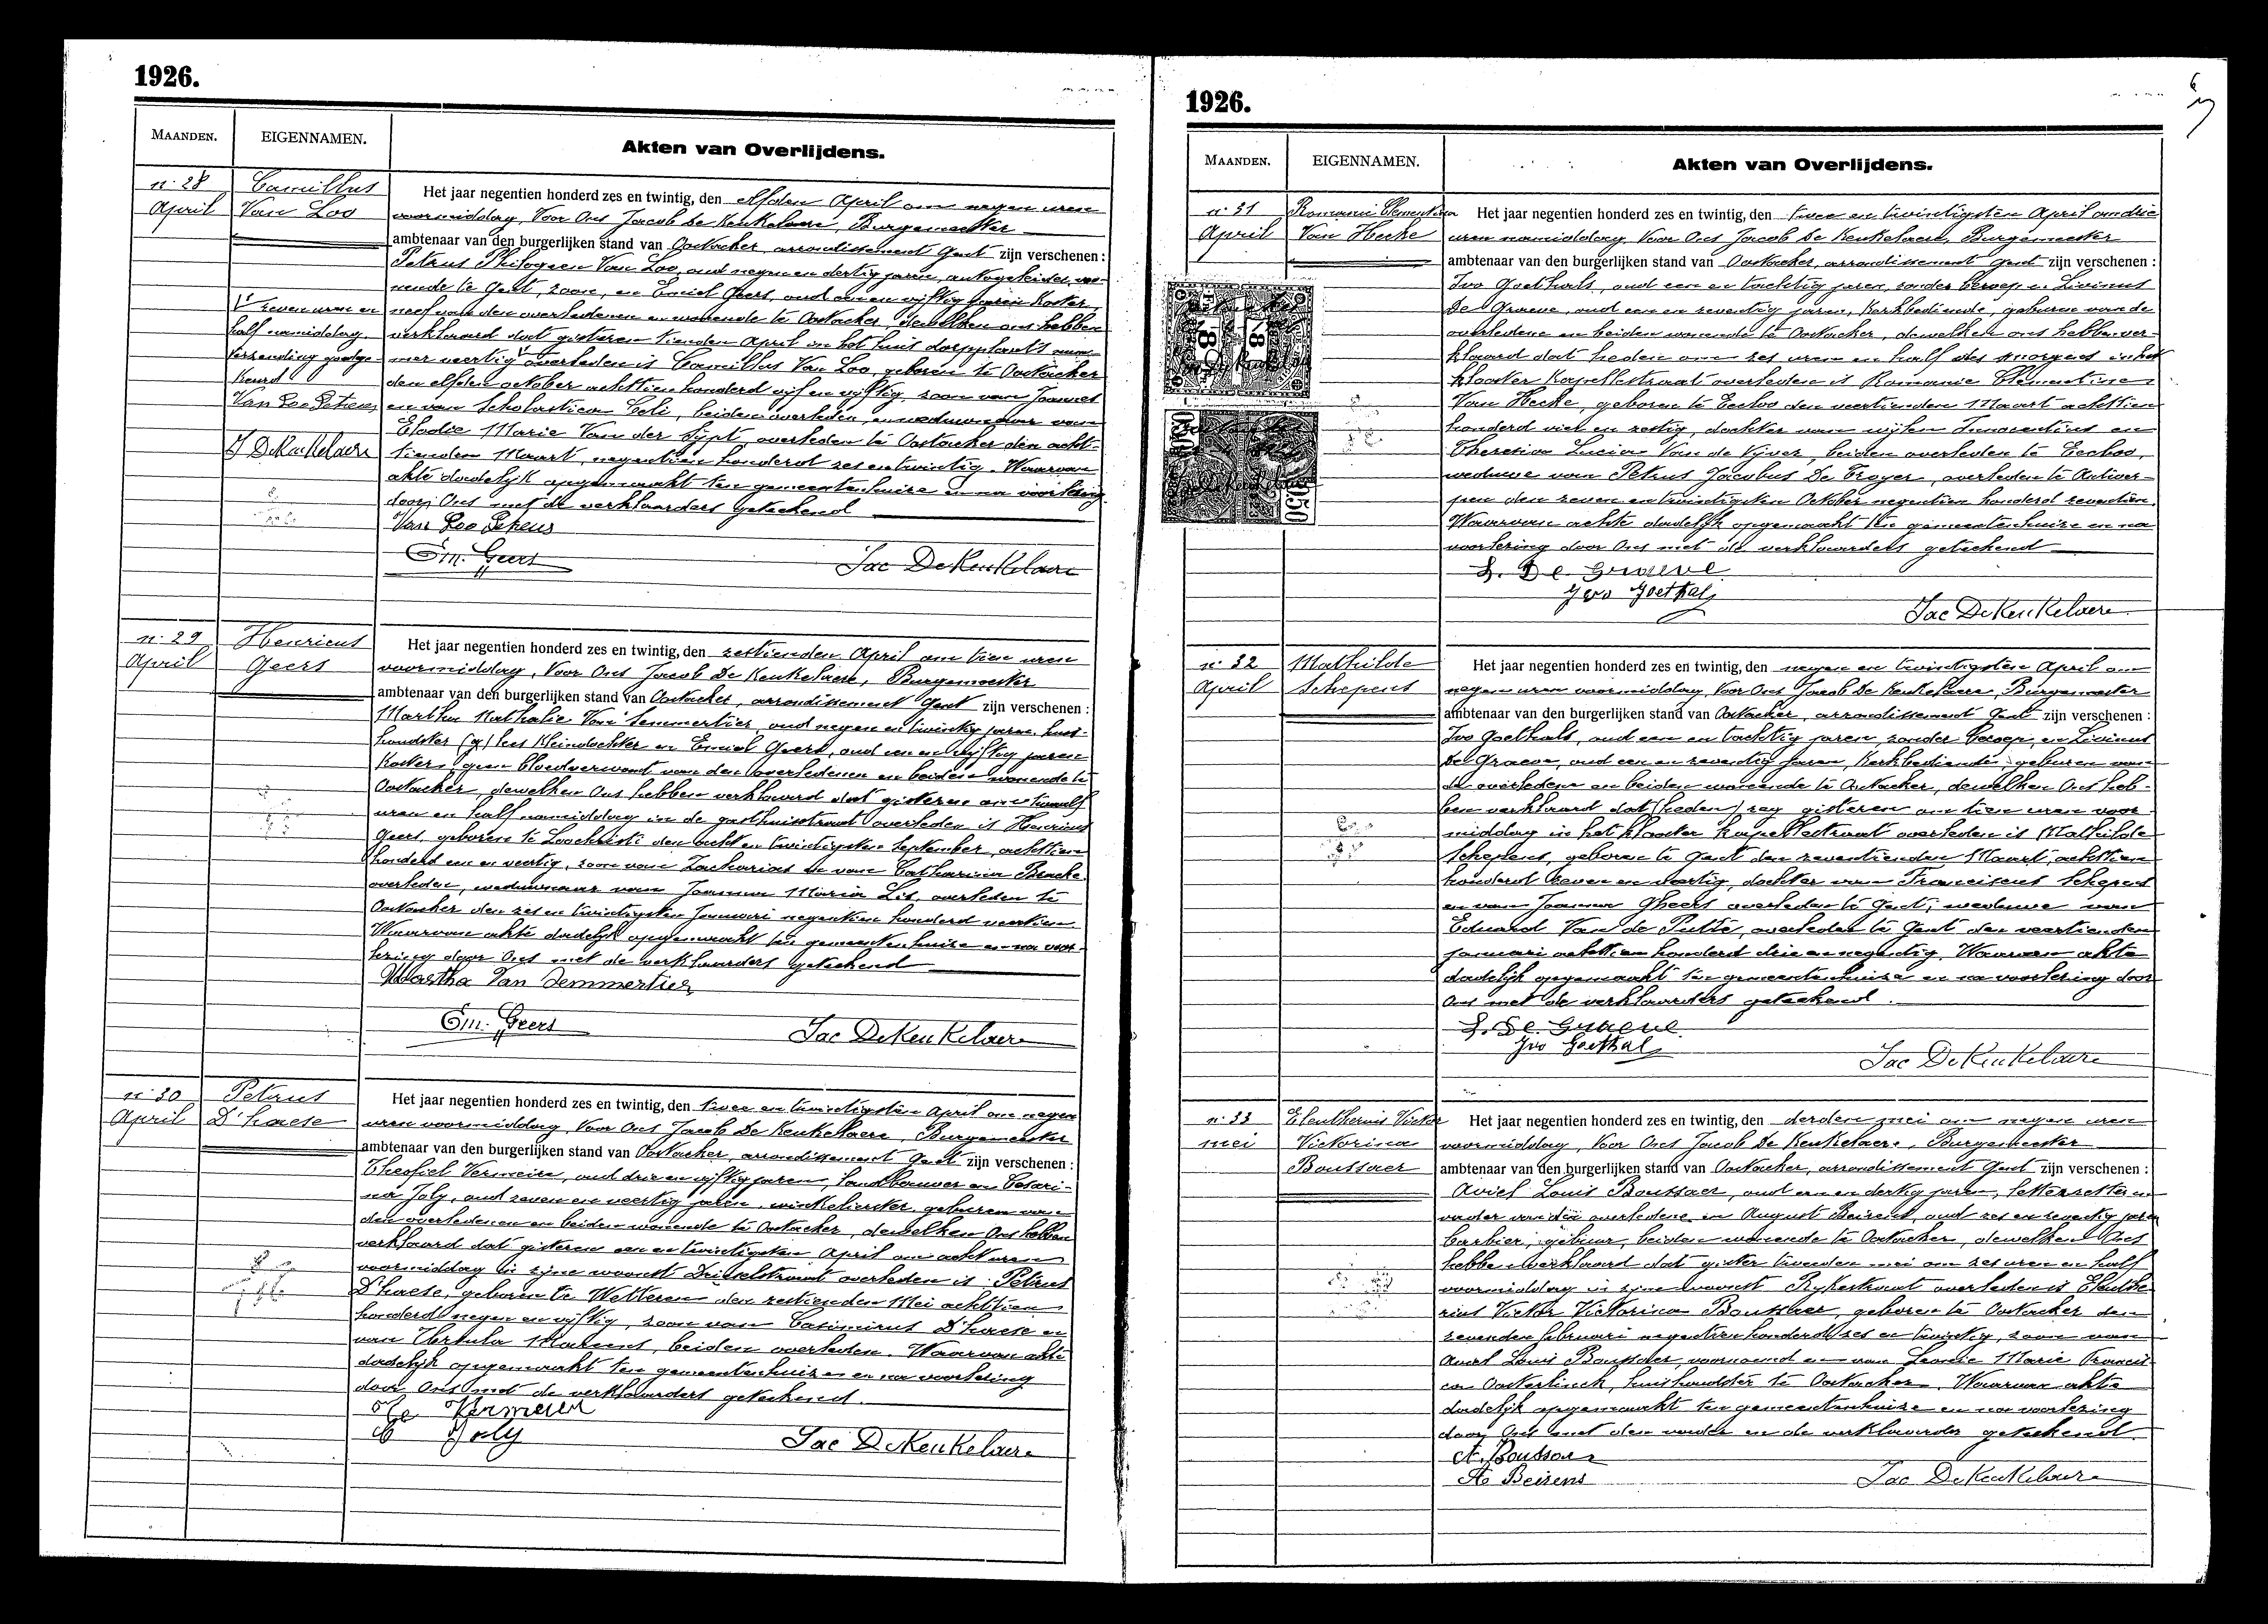 1926.
MAANDEN.
EIGENNAMEN.
Akten van Overlijdens.
n. 28
April
Camillus
Van Loo
Het jaar negentien honderd zes en twintig, den elfden April om negen uren
voormiddag, Voor Ons Jacob De Keukelaere, Burgemeester
ambtenaar van den burgerlijken stand van Oostacker, arrondissement Gent zijn verschenen :
Petrus Philogeen Van Loo, oud negen en dertig jaren, autogeleider, wo-
nende te Gent, zoon, en Emiel Geers, oud een en vijftig jaren Koster,
neef van den overledenen en wonende te Oostacker, dewelken ons hebben
verklaard dat gisteren tienden April in het huis dorpplaats num-
mer veertig overleden is Camillus Van Loo, geboren te Oostacker
den elfden october achttien honderd vijf en vijftig, zoon van Joannes
en van Scholastica Celi, beiden overleden, en weduwnaar van
Elodie Marie Van der Sypt, overleden te Oostacker den acht-
tienden Maart, negentien honderd zes en twintig. Waarvan
akte dadelijk opgemaakt ten gemeentenhuize en na voorlezing
door Ons met de verklaarders geteekend
zeven uren en
half namiddag.
Verzending goedge-
keurd
J DeKeukelaere
Van Loo
Em. Geers
Jac DeKeukelaere
n. 29
April
Henricus
Geers
Het jaar negentien honderd zes en twintig, den zestienden April om tien uren
voormiddag, Voor Ons Jacob De Keukelaere, Burgemeester
ambtenaar van den burgerlijken stand van Oostacker, arrondissement Gent zijn verschenen :
Martha Nathalie Van Semmertier, oud negen en twintig jaren, huis-
houdster (g) lees Kleindochter en Emiel Geers, oud een en vijftig jaren
Koster, geen bloedverwant van den overledenen en beiden wonende te
Oostacker, dewelken Ons hebben verklaard dat gisteren om twaalf
uren en half namiddag in de gasthuisstraat overleden is Henricus
Geers, geboren te Loochristi den acht en twintigsten September, achttien
honderd een en veertig, zoon van Zacharias en van Catharina Bracke
overleden, weduwnaar van Joanna Maria Lis, overleden te
Oostacker den zes en twintigsten Januari negentien honderd veertien.
Waarvan akte dadelijk opgemaakt ten gemeentenhuize en na voor-
lezing door Ons met de verklaarders geteekend
Martha Van Semmertier
Em. Geers
Jac DeKeukelaere
n. 30
April
Petrus
D'haese
Het jaar negentien honderd zes en twintig, den twee en twintigsten April om negen
uren voormiddag, Voor Ons Jacob De Keukelaere, Burgemeester
ambtenaar van den burgerlijken stand van Oostacker, arrondissement Gent zijn verschenen :
Theofiel Vermeire, oud drie en vijftig jaren, Landbouwer en Cesari-
na Joly, oud zeven en veertig jaren, winkelierster, geburen van
den overledenen en beiden wonende te Oostacker, dewelken Ons hebben
verklaard dat gisteren een en twintigsten April om acht uren
voormiddag in zijne woonst overleden is Petrus
D'haese, geboren te Wetteren den zestienden Mei achttien
honderd negen en vijftig, zoon van Casimirus D'haese en
van Ursula beiden overleden. Waarvan akte
dadelijk opgemaakt ten gemeentenhuize en na voorlezing
door Ons met de verklaarders geteekend.
Vermeire
Joly
Jac DeKeukelaere
1926.
MAANDEN.
EIGENNAMEN.
Akten van Overlijdens.
n. 31
April
Romanie Clementina
Van Hecke
Het jaar negentien honderd zes en twintig, den twee en twintigsten April om drie
uren namiddag, Voor Ons Jacob De Keukelaere, Burgemeester
ambtenaar van den burgerlijken stand van Oostacker, arrondissement Gent zijn verschenen :
Ivo Goethals, oud een en tachtig jaren, zonder beroep en Livinus
De Graeve, oud een en zeventig jaren, Kerkbediende, geburen van de
overledene en beiden wonende te Oostacker, dewelken ons hebben ver-
klaard dat heden om zes uren en half des morgens in het
klooster Kapellestraat overleden is Romanie Clementine
Van Hecke, geboren te Eecloo den veertienden Maart achttien
honderd vier en zestig, dochter van wijlen Innocentius en
Theresia Lucia Van de Vijver, beiden overleden te Eecloo,
weduwe van Petrus Jacobus De Troyer, overleden te Antwer-
pen den zeven en twintigsten October negentien honderd zeventien.
Waarvan achte dadelijk opgemaakt ten gemeentenhuize en na
voorlezing door Ons met de verklaarders geteekend
L. De Graeve
Ivo Goethals
Jac DeKeukelaere
n. 32
April
Mathilde
Schepens
Het jaar negentien honderd zes en twintig, den negen en twintigsten April om
negen uren voormiddag, Voor Ons Jacob De Keukelaere, Burgemeester
ambtenaar van den burgerlijken stand van Oostacker, arrondissement Gent zijn verschenen :
Ivo Goethals, oud een en tachtig jaren, zonder beroep, en Livinus
De Graeve, oud een en zeventig jaren, Kerkbediende, geburen van
de overledene en beiden wonende te Oostacker, dewelken Ons heb-
ben verklaard dat (heden) zeg gisteren om tien uren voor-
middag in het klooster kapellestraat overleden is Mathilde
Schepens, geboren te Gent den zeventienden Maart, achttien
honderd zeven en veertig, dochter van Franciscus Schepens
en van Joanna Gheers overleden te Gent; weduwe van
Eduard Van de Putte, overleden te Gent den veertienden
januari achttien honderd drie en negentig. Waarvan akte
dadelijk opgemaakt ten gemeentenhuize en na voorlezing door
Ons met de verklaarders geteekend.
L. De Graeve
Ivo Goethals
Jac DeKeukelaere
n. 33
mei
Eleutherius Victor
Victorina
Boussaer
Het jaar negentien honderd zes en twintig, den derden mei om negen uren
voormiddag, Voor Ons Jacob De Keukelaere, Burgemeester
ambtenaar van den burgerlijken stand van Oostacker, arrondissement Gent zijn verschenen :
Aviel Louis Boussaer, oud een en dertig jaren, letterzetter en
vader van den overledene en August Beirens, oud zes en zeventig jaren
barbier, gebuur, beiden wonende te Oostacker, dewelken Ons
hebben verklaard dat gister tweeden mei om zes uren en half
voormiddag in zijne woonst Rykestraat overleden is Eleuthe-
rius Victor Victorina Boussaer, geboren te Oostacker den
zevenden februari negentien honderd zes en twintig, zoon van
Aviel Louis Boussaer, voornoemd en van Leonie Marie Francis-
ca Oosterlinck, huishoudster te Oostacker. Waarvan akte
dadelijk opgemaakt ten gemeentenhuize en na voorlezing
door Ons met den vader en de verklaarder geteekend.
A. Boussaer
A. Beirens
Jac DeKeukelaere